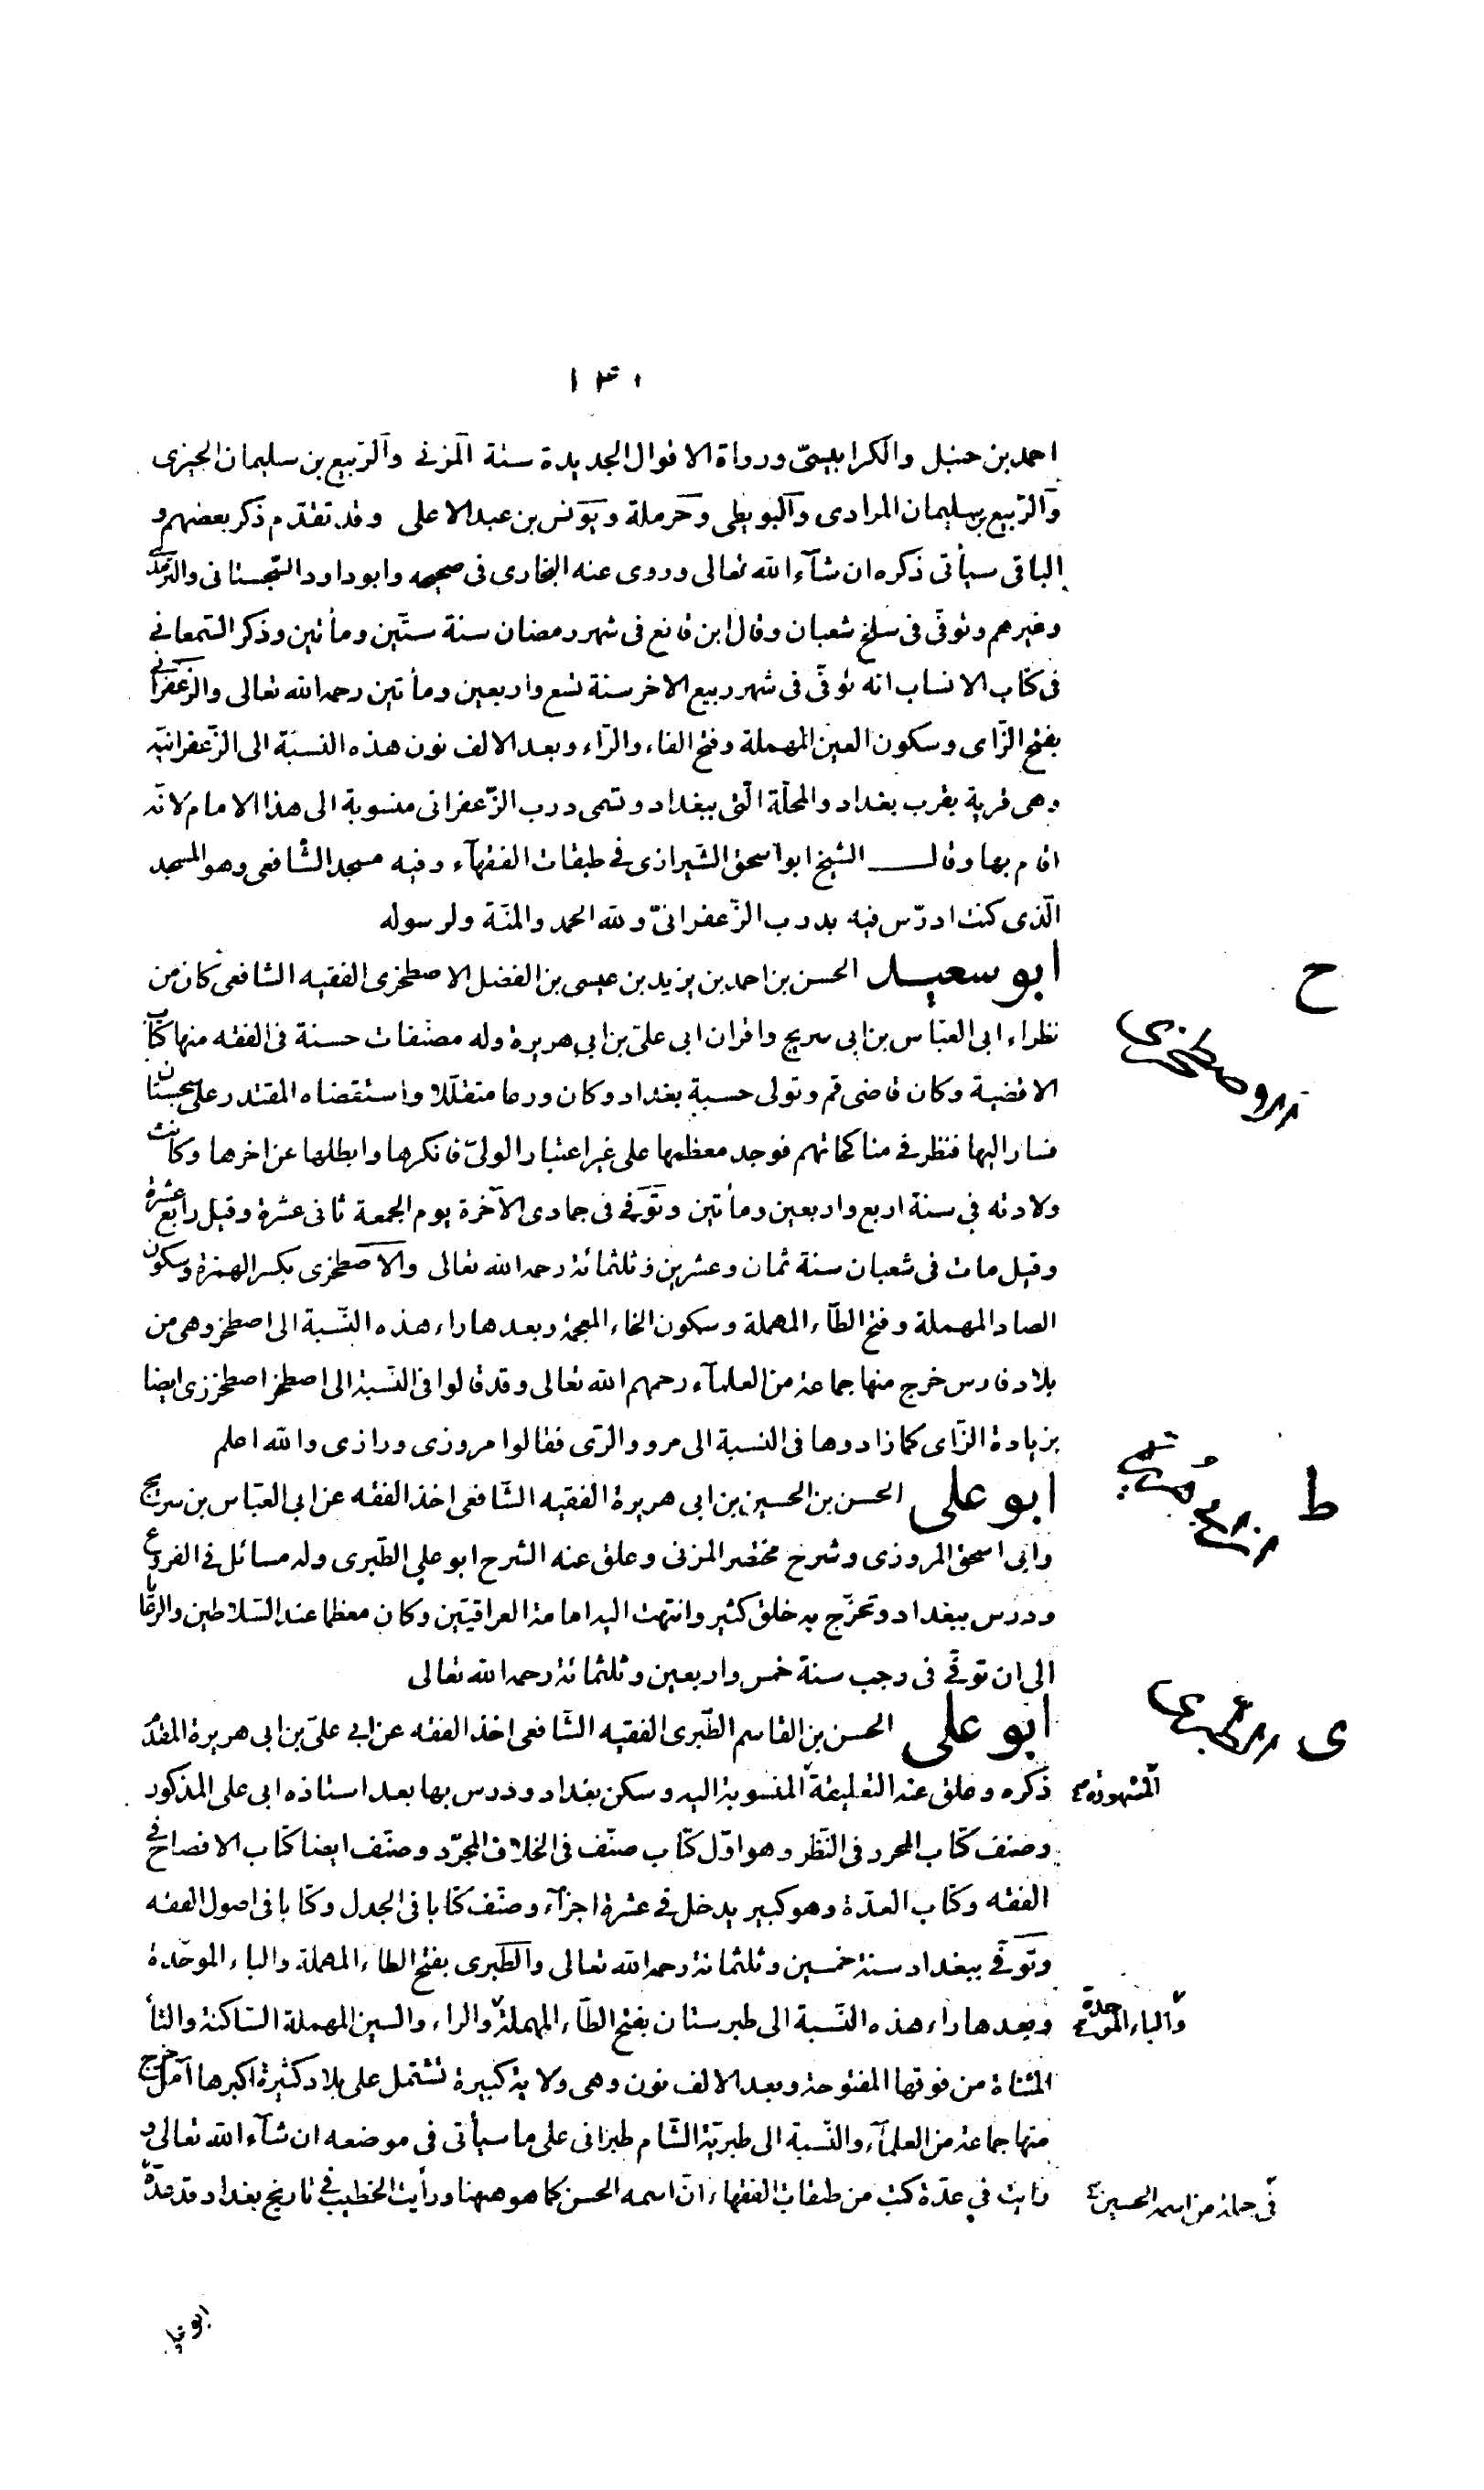 ١٣٠
احمد بن حنبل والكرابيسىّ ورواة الاقوال الجديدة ستة المزنى والربيع بن سليمان الجيزى
والربيع بن سليمان المرادى والبويطى وحرملة ويونس بن عبد الاعلى وقد تقدّم ذكر بعضهم و
الباقى سيأتى ذكره ان شآء الله تعالى وروى عنه البخارى فى صحيحه وابو داود السّجستانى والترمذى
وغيرهم وتوفّى فى سلخ شعبان وقال ابن قانع فى شهر رمضان سنة ستّين ومأتين وذكر السّمعانى
فى كتاب الانساب انه توفّى فى شهر ربيع الاخر سنة تسع واربعين ومأتين رحمه الله تعالى والزعفرانى
بفتح الزّاى وسكون العين المهملة وفتح الفاء والرّاء وبعد الالف نون هذه النسبة الى الزّعفرانيّة
وهى قرية بقرب بغداد والمحلّة الّتى ببغداد وتسمى درب الزّعفرانى منسوبة الى هذا الامام لانّه
اقام بها وقال الشيخ ابو اسحق الشّيرازى فى طبقات الفقهآء وفيه مسجد الشّافعى وهو المسجد
الّذى كنت ادرّس فيه بدرب الزّعفرانىّ ولله الحمد والمنّة ولرسوله
ح
الاصطخرى
ابو سعيد الحسن بن احمد بن يزيد بن عيسى بن الفضل الاصطخرى الفقيه الشافعى كان من
نظراء ابى العبّاس بن ابى سريج واقران ابى علىّ بن ابى هريرة وله مصنّفات حسنة فى الفقه منها كتاب
الاقضية وكان قاضى قم وتولى حسبة بغداد وكان ورعا متقلّلا واستقضاه المقتدر على سجستان
فسار اليها فنظر فى مناكحاتهم فوجد معظمها على غير اعتبار الولىّ فانكرها وابطلها عن اخرها وكانت
ولادته فى سنة اربع واربعين ومأتين وتوفى فى جمادى الآخرة يوم الجمعة ثانى عشرة وقيل رابع عشرة
وقيل مات فى شعبان سنة ثمان وعشرين وثلثمائة رحمه الله تعالى والاصطخرى بكسر الهمزة وسكون
الصاد المهملة وفتح الطّاء المهملة وسكون الخاء المعجمة وبعدها راء هذه النّسبة الى اصطخر وهى من
بلاد فارس خرج منها جماعة من العلمآء رحمهم الله تعالى وقد قالوا فى النسبة الى اصطخر اصطخرزى ايضا
بزيادة الزّاى كما زادوها فى النسبة الى مرو والرّى فقالوا مروزى ورازى والله اعلم
ط
ابن ابى هريرة
ابو على الحسن بن الحسين بن ابى هريرة الفقيه الشّافعى اخذ الفقه عن ابى العبّاس بن سريج
وابى اسحق المروزى وشرح مختصر المزنى وعلق عنه الشرح ابو على الطّبرى وله مسائل فى الفروع
ودرس ببغداد وتخرّج به خلق كثير وانتهت اليه امامة العراقيّين وكان معظما عند السّلاطين والرعايا
الى ان توفّى فى رجب سنة خمس واربعين وثلثمائة رحمه الله تعالى
ى الطبرى
ابو على الحسن بن القاسم الطّبرى الفقيه الشّافعى اخذ الفقه عن ابى علىّ بن ابى هريرة المقدّم
ذكره وعلق عنه التعليقة المنسوبة اليه وسكن بغداد ودرس بها بعد استاذه ابى على المذكور
المشهورة
وصنف كتاب المحرد فى النّظر وهو اوّل كتاب صنّف فى الخلاف المجرّد وصنّف ايضا كتاب الافصاح فى
الفقه وكتاب العدّة وهو كبير يدخل فى عشرة اجزآء وصنّف كتابا فى الجدل وكتابا فى اصول الفقه
وتوفّى ببغداد سنة خمسين وثلثمائة رحمه الله تعالى والطّبرى بفتح الطاء المهملة والباء الموحّدة
وبعدها راء هذه النّسبة الى طبرستان بفتح الطّاء المهملة والراء والسين المهملة السّاكنة والتّأ
والباء الموحدة
المثناة من فوقها المفتوحة وبعد الالف نون وهى ولاية كبيرة تشتمل على بلاد كثيرة اكبرها آمل خرج
منها جماعة من العلمآء والنّسبة الى طبريّة الشّام طبرانى على ما سيأتى فى موضعه ان شآء الله تعالى و
رايت فى عدّة كتب من طبقات الفقهاء انّ اسمه الحسن كما هو ههنا ورأيت الخطيب فى تاريخ بغداد قد عدّه
فى جملة من اسمه الحسين
ابو على